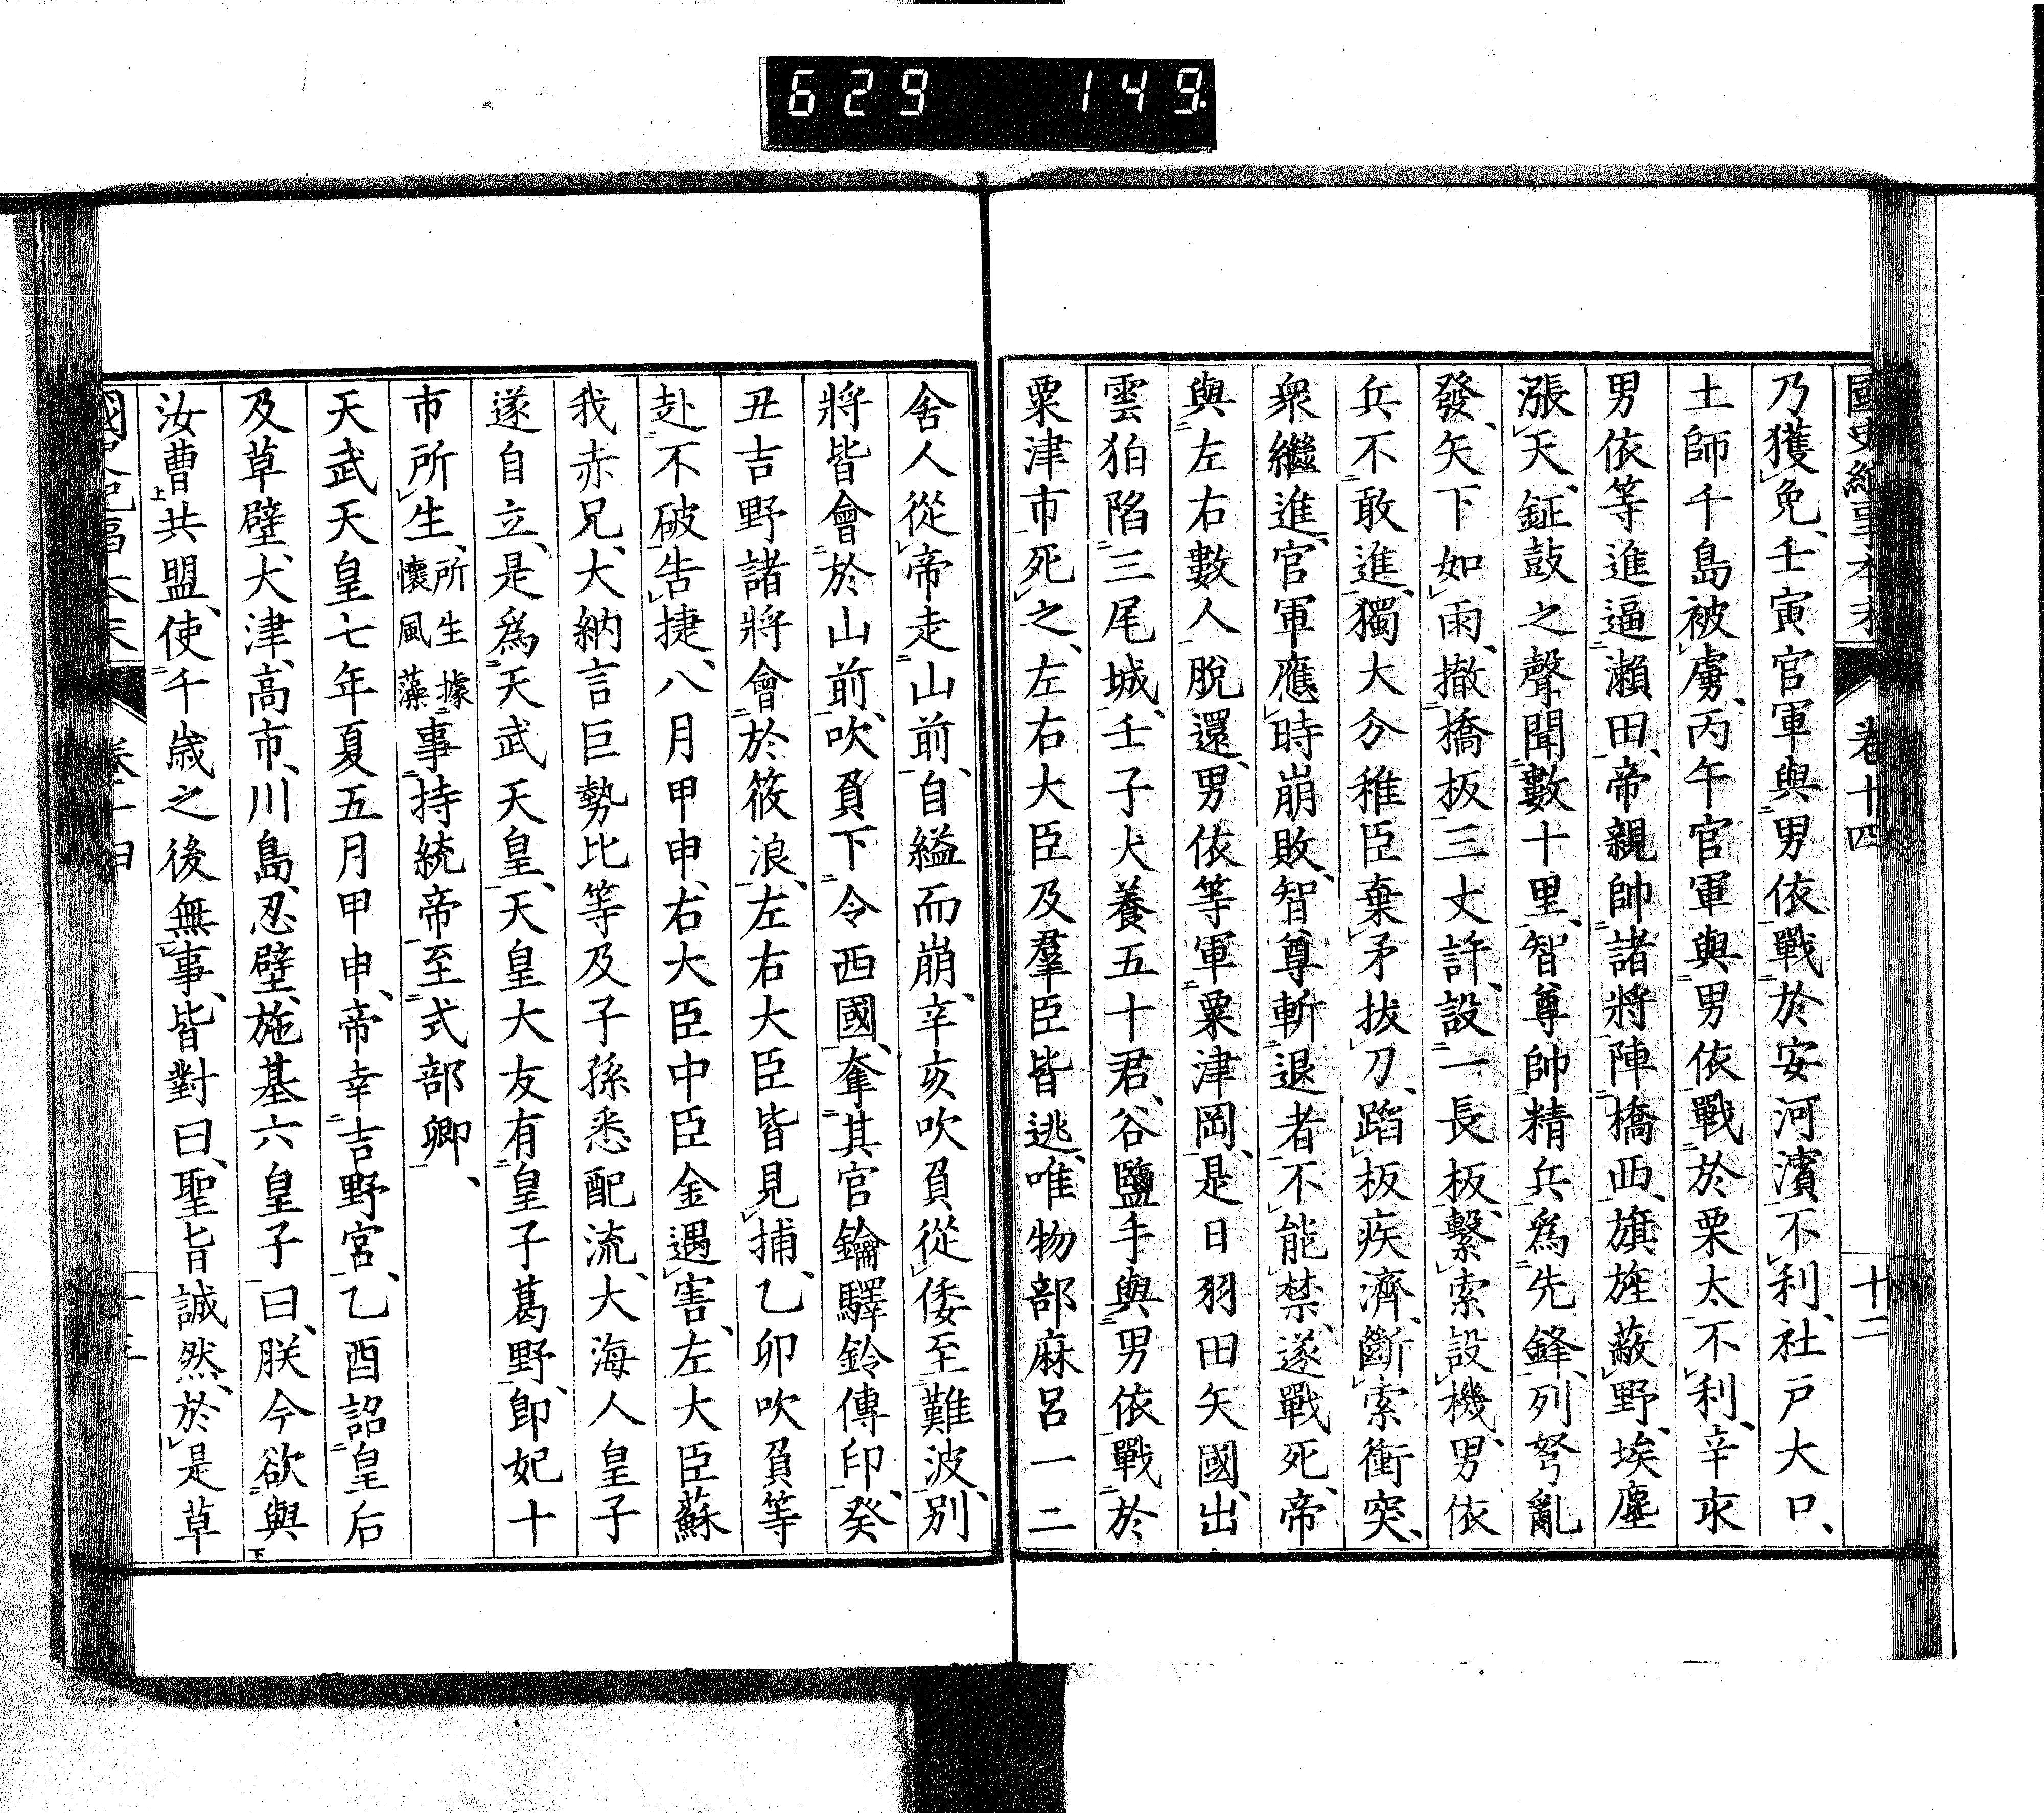 629 149
國史紀事本末 卷十四 十二
乃獲免、壬寅官軍與男依戰於安河濱不利、社戸大口、
土師千島被虜、丙午官軍與男依戰於栗太不利、辛亥
男依等進逼瀬田、帝親帥諸將陣橋西、旗旌蔽野、埃塵
漲天、鉦鼓之聲聞數十里、智尊帥精兵爲先鋒、列弩亂
發、矢下如雨、撤橋板三丈許、設一長板、繫索設機、男依
兵不敢進、獨大分稚臣棄矛拔刀、蹈板疾濟、斷索衝突、
衆繼進、官軍應時崩敗、智尊斬退者不能禁、遂戰死、帝
與左右數人脱還、男依等軍粟津岡、是日羽田矢國、出
雲狛陷三尾城、壬子犬養五十君、谷鹽手與男依戰於
粟津市死之、左右大臣及羣臣皆逃、唯物部麻呂一二
舍人從、帝走山前、自縊而崩、辛亥吹負從倭至難波、別
將皆會於山前、吹負下令西國、奪其官鑰驛鈴傳印、癸
丑吉野諸將會於筱浪、左右大臣皆見捕、乙卯吹負等
赴不破告捷、八月甲申、右大臣中臣金遇害、左大臣蘇
我赤兄、大納言巨勢比等及子孫悉配流、大海人皇子
遂自立、是爲天武天皇、天皇大友有皇子葛野、卽妃十
市所生、所生據懷風藻事持統帝至式部卿、
天武天皇七年夏五月甲申、帝幸吉野宮、乙酉詔皇后
及草壁、大津、高市、川島、忍壁、施基六皇子曰、朕今欲與
汝曹共盟、使千歳之後無事、皆對曰、聖旨誠然、於是草